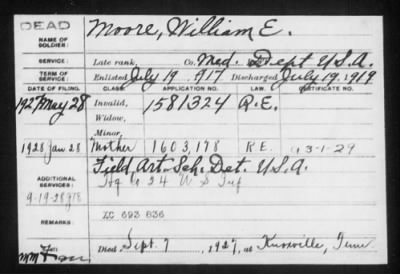 DEAD
NAME OF SOLDIER: Moore, William E.
SERVICE: Late rank, Co. Med. Dept U.S.A.
TERM OF SERVICE: Enlisted July 19, 1917 Discharged July 19, 1919
DATE OF FILING. CLASS. APPLICATION NO. LAW. CERTIFICATE NO.
1927 May 28 Invalid, 1581324 R.E.
Widow,
Minor,
1928 Jan 28 Mother 1603,178 R.E. 3-1-29
ADDITIONAL SERVICES: Field Art. Sch. Det. U.S.A.
Hq Co 24 U S Inf
9-19-28
REMARKS: XC 693 636
Died Sept. 7, 1927, at Knoxville, Tenn